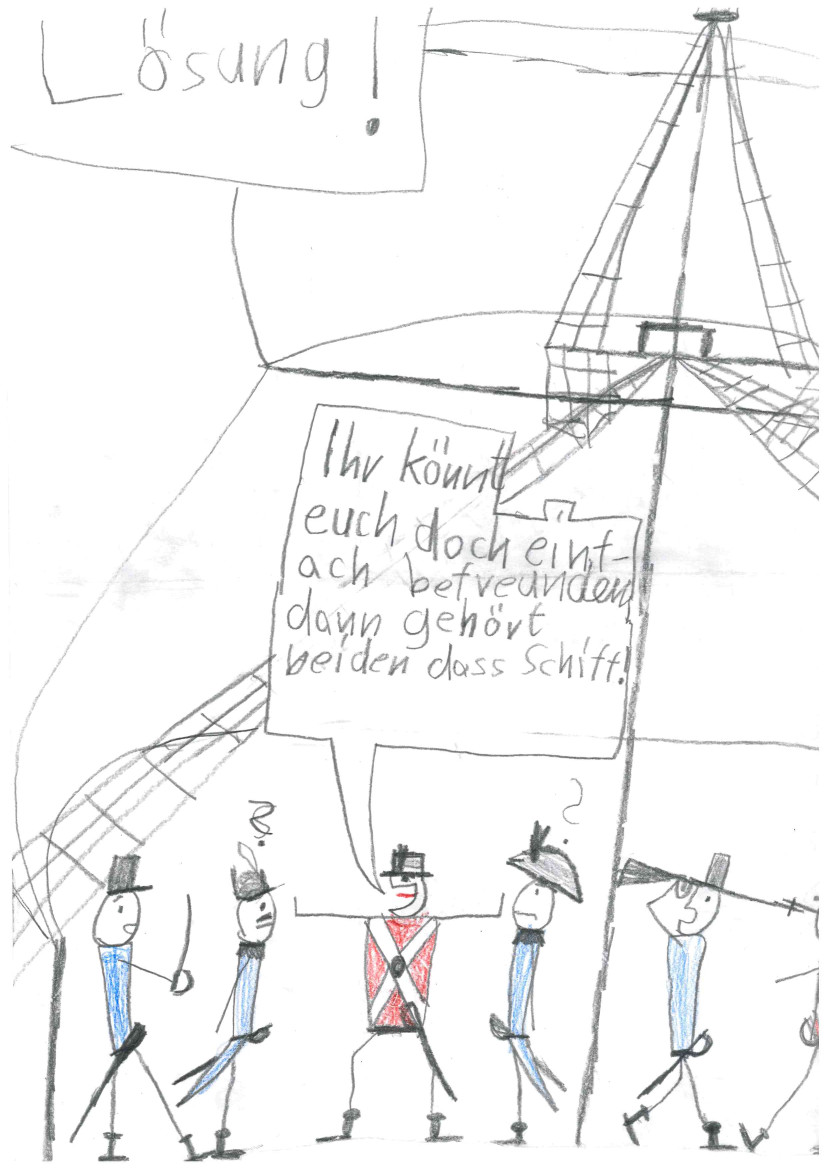 Lösung!
Ihr könnt
euch doch einf-
ach befreunden
dann gehört
beiden dass Schiff!
?
?